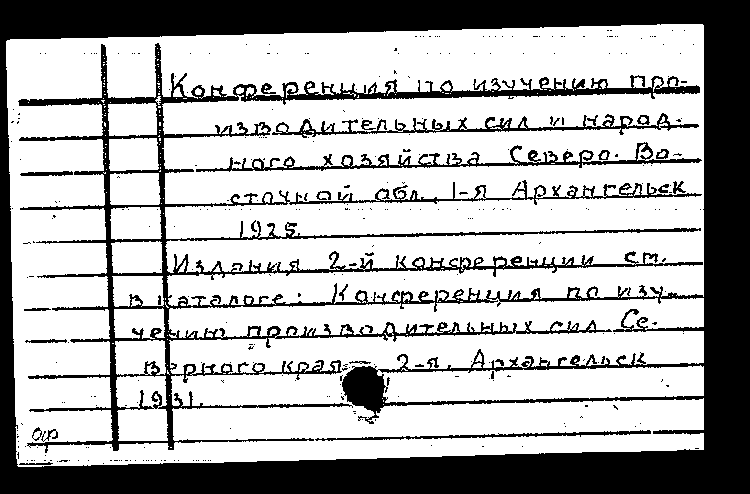 Конференция по изучению про-
изводительных сил и народ-
ного хозяйства Северо-Во-
сточной обл. 1-я Архангельск
1925.
Издания 2-й конференции см.
в каталоге: Конференция по изу-
чению производительных сил Се-
верного края 2-я. Архангельск
1931.
ар